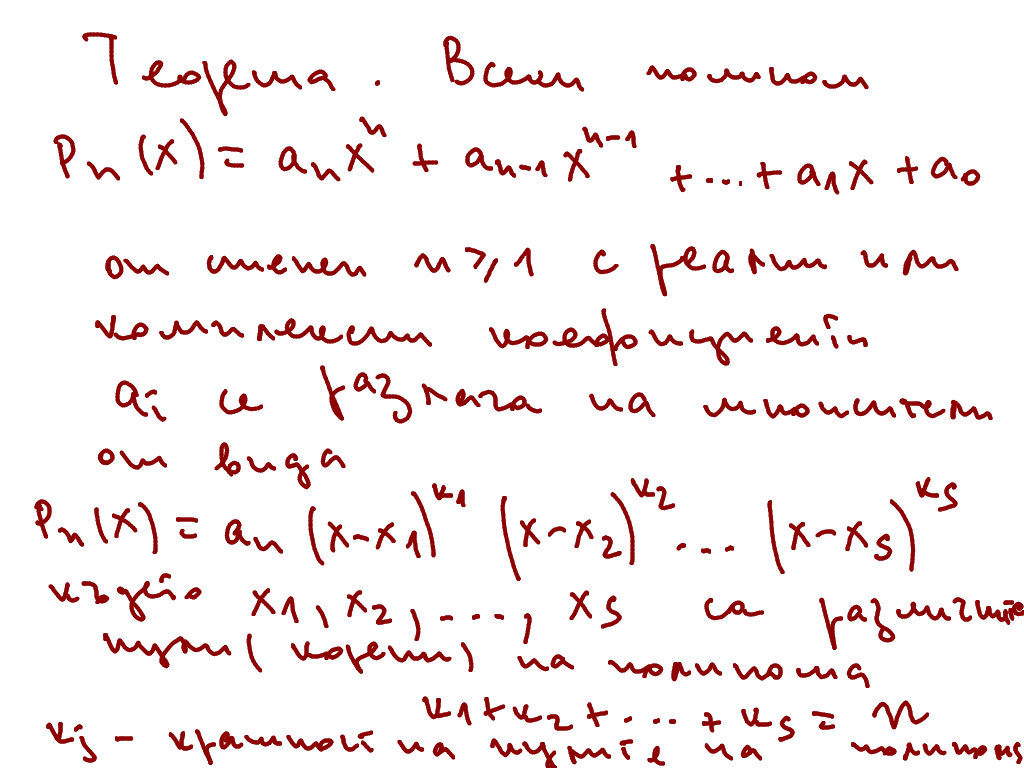 Теорема. Всеки полином
Pₙ(x) = aₙxⁿ + aₙ₋₁xⁿ⁻¹ + ... + a₁x + a₀
от степен n ≥ 1 с реални или
комплексни коефициенти
aᵢ се разлага на множители
от вида
Pₙ(x) = aₙ (x-x₁)^k₁ (x-x₂)^k₂ ... (x-x_s)^k_s
където x₁, x₂, ..., x_s са различните
нули (корени) на полинома
k₁ + k₂ + ... + k_s = n
k_j - кратност на нулите на полинома